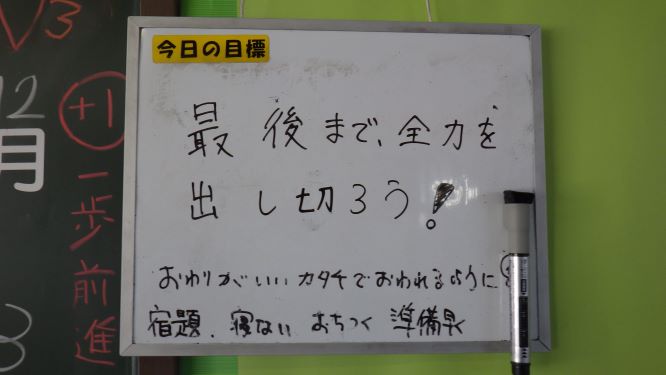 V3
12
月
+1
一歩前進
今日の目標
最後まで、全力を
出し切ろう!
おわりがいいカタチでおわれるように
宿題、寝ない おちつく 準備早く
3